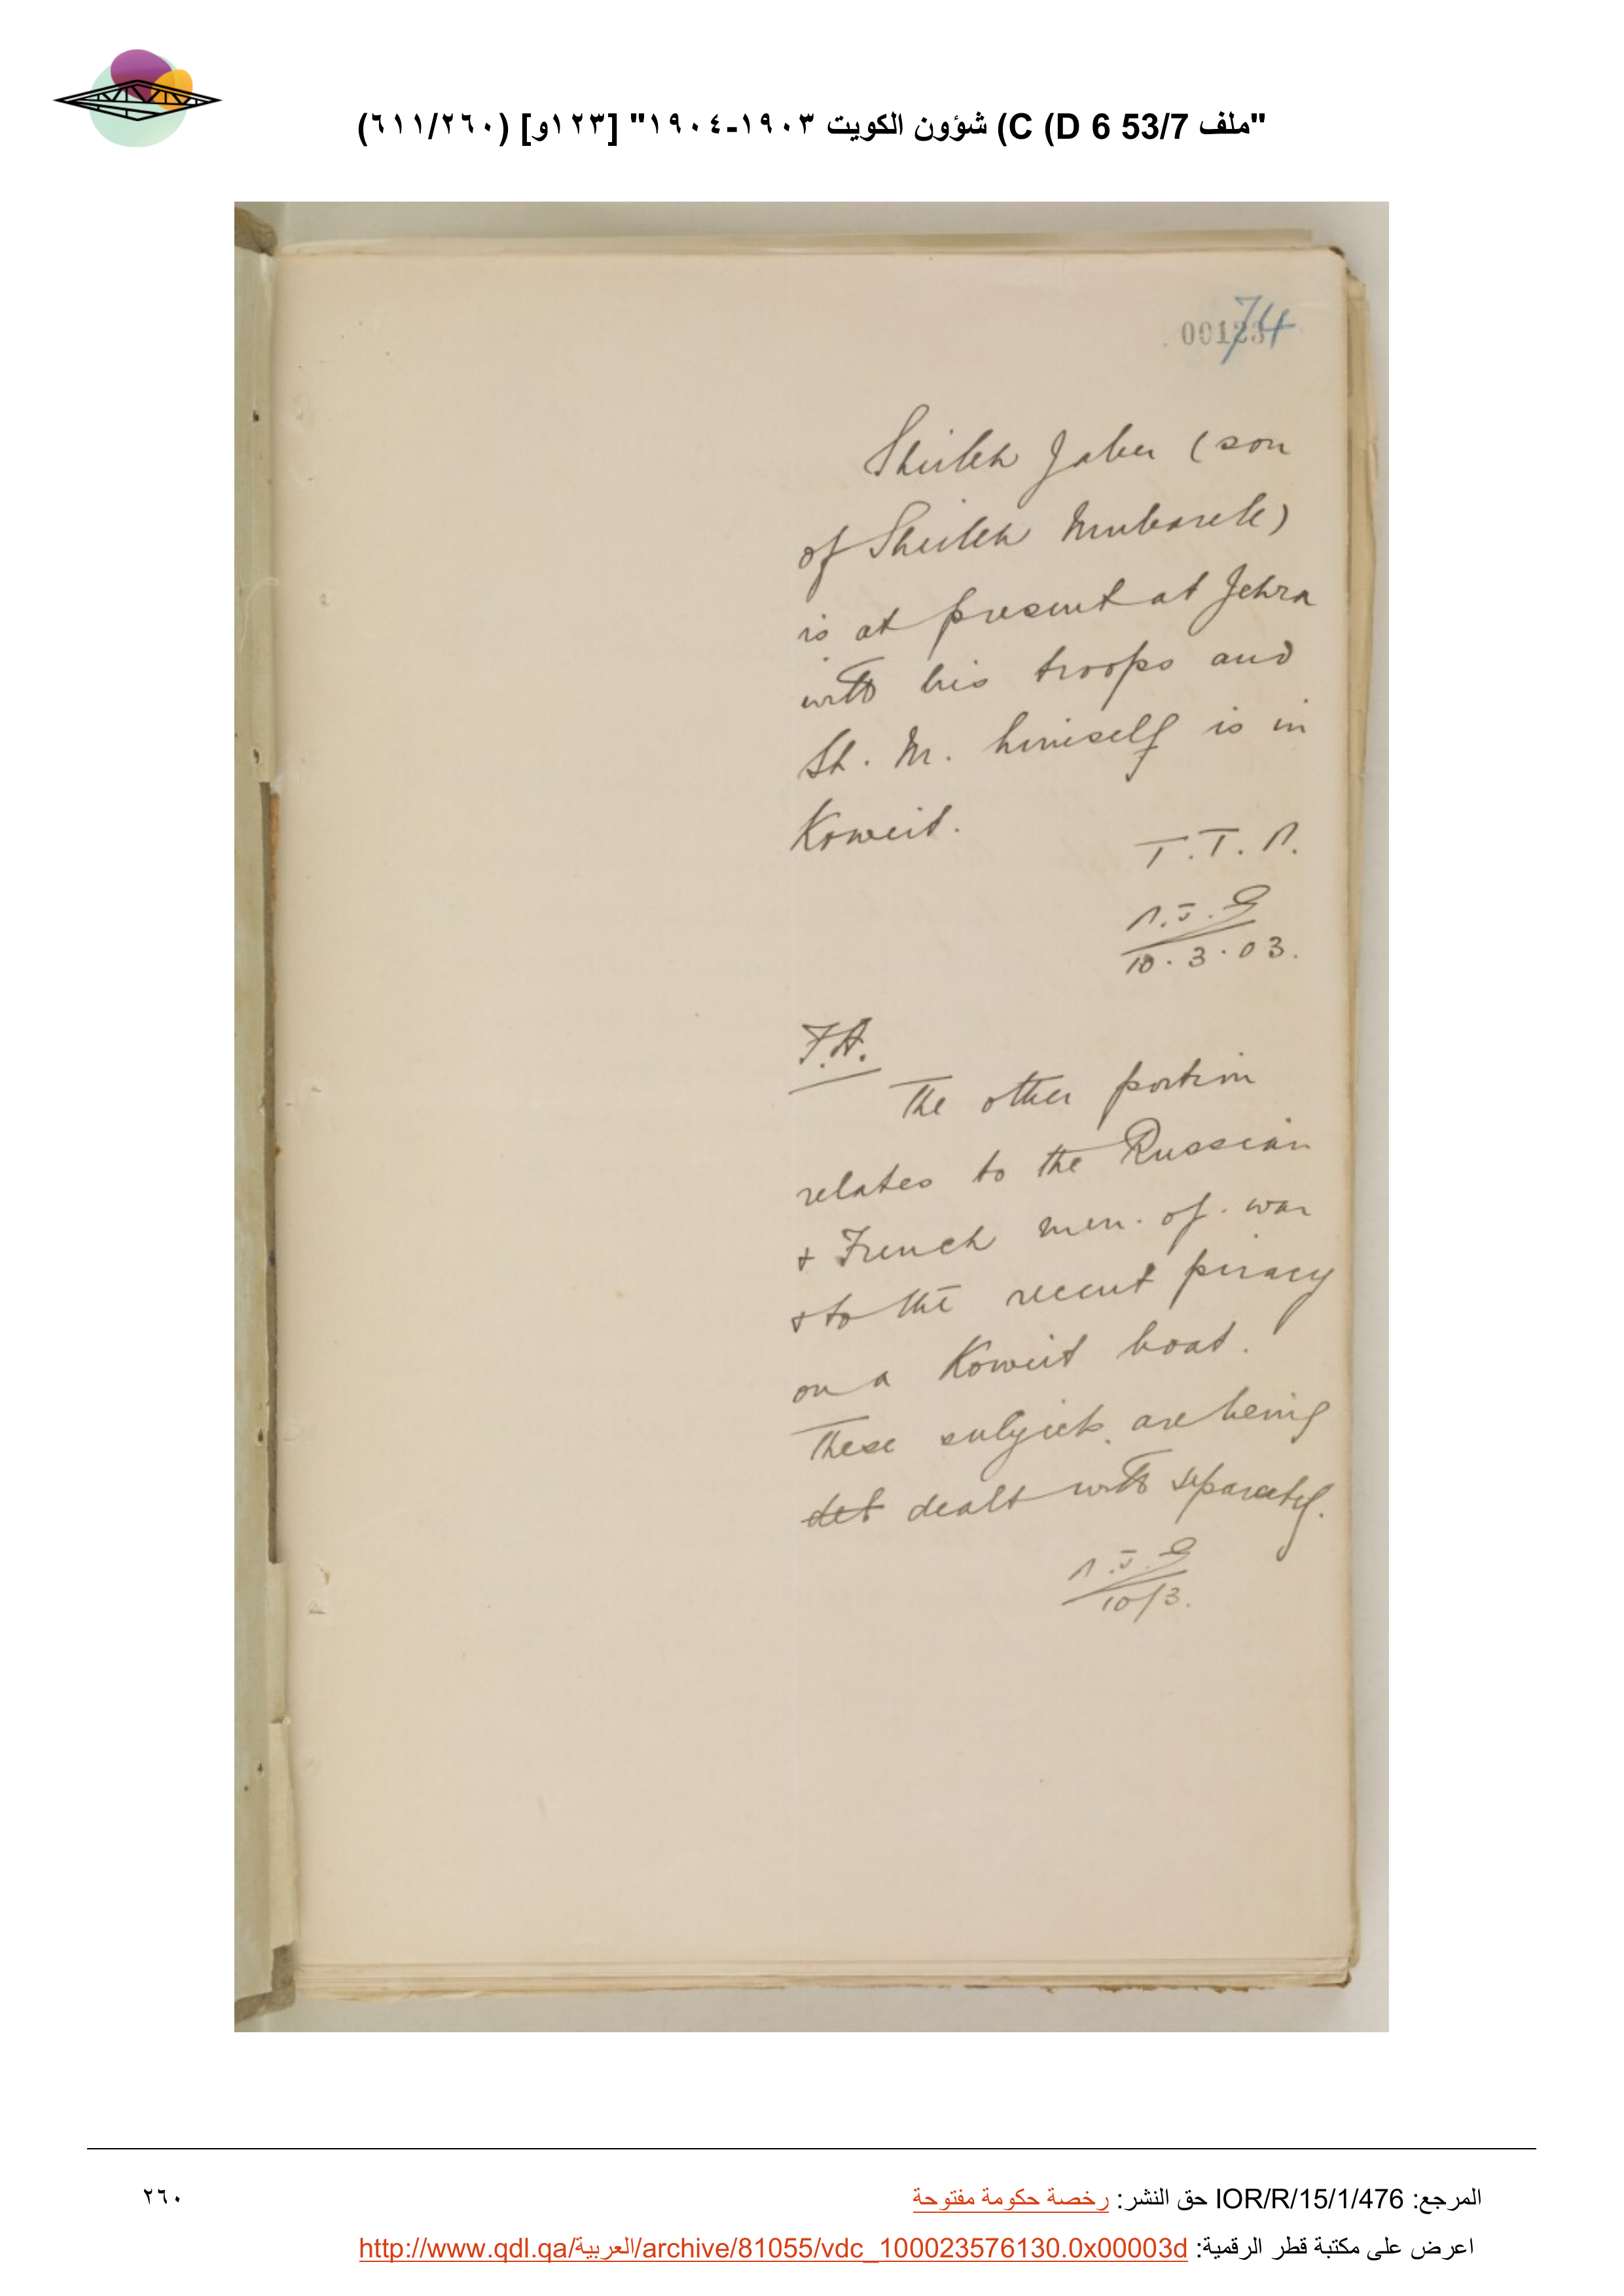 "ملف 53/7 C (D 6) شؤون الكويت ١٩٠٣-١٩٠٤" [١٢٣و] (٦١١/٢٦٠)
00123
74
Sheikh Jaber (son
of Sheikh Mubarek)
is at present at Jehra
with his troops and
Sh. M. himself is in
Koweit.
T.T.R.
10.3.03.
F.A.
The other portion
relates to the Russian
& French men.of.war
& to the recent piracy
on a Koweit boat.
These subjects are being
det dealt with separately.
10/3.
المرجع: IOR/R/15/1/476 حق النشر: رخصة حكومة مفتوحة
٢٦٠
اعرض على مكتبة قطر الرقمية: http://www.qdl.qa/العربية/archive/81055/vdc_100023576130.0x00003d